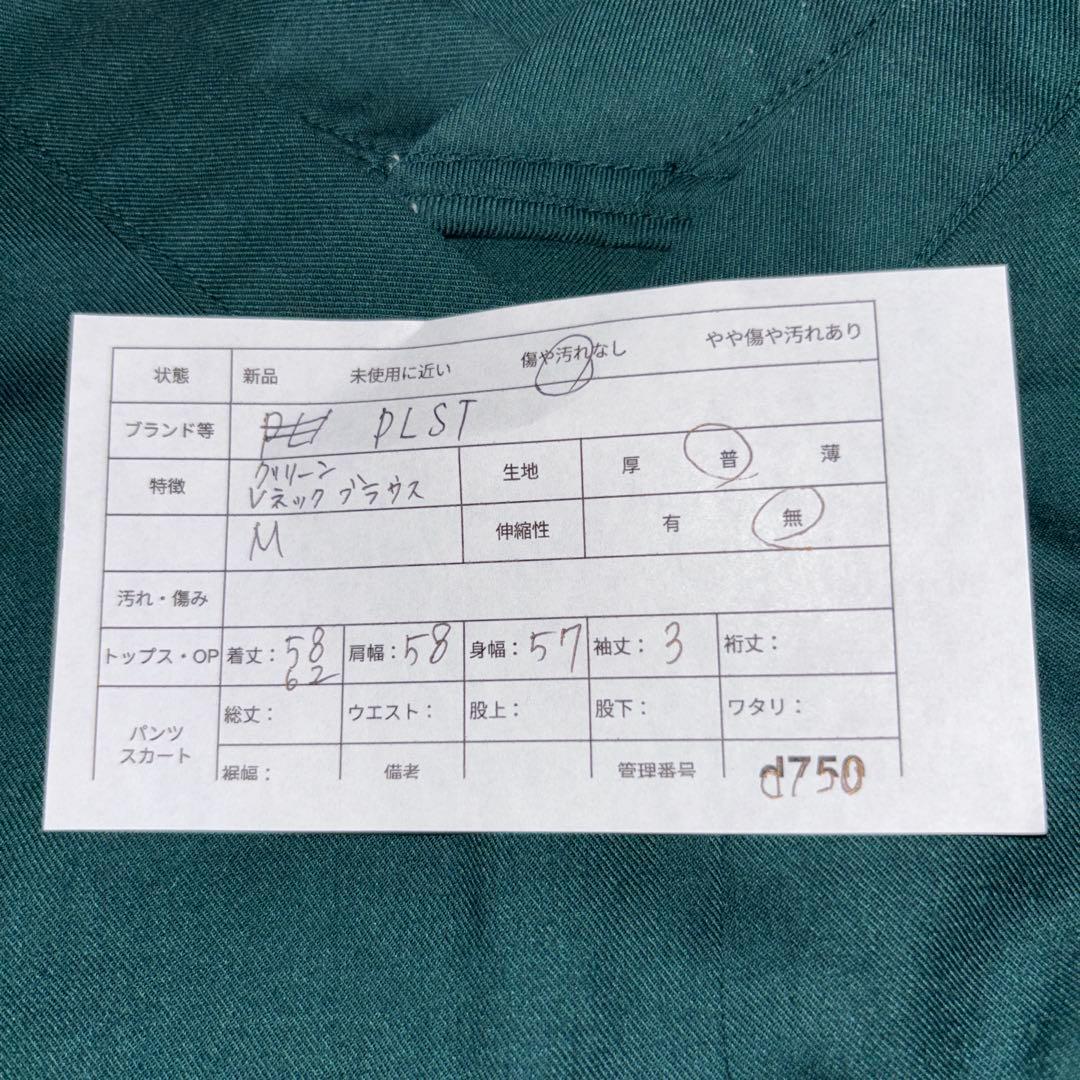 状態 新品 未使用に近い 傷や汚れなし やや傷や汚れあり
ブランド等 PLST
特徴 グリーン 生地 厚 普 薄
Vネックブラウス
M 伸縮性 有 無
汚れ・傷み
トップス・OP 着丈:58 肩幅:58 身幅:57 袖丈:3 裄丈:
62
パンツ スカート 総丈: ウエスト: 股上: 股下: ワタリ:
裾幅: 備考 管理番号 d750